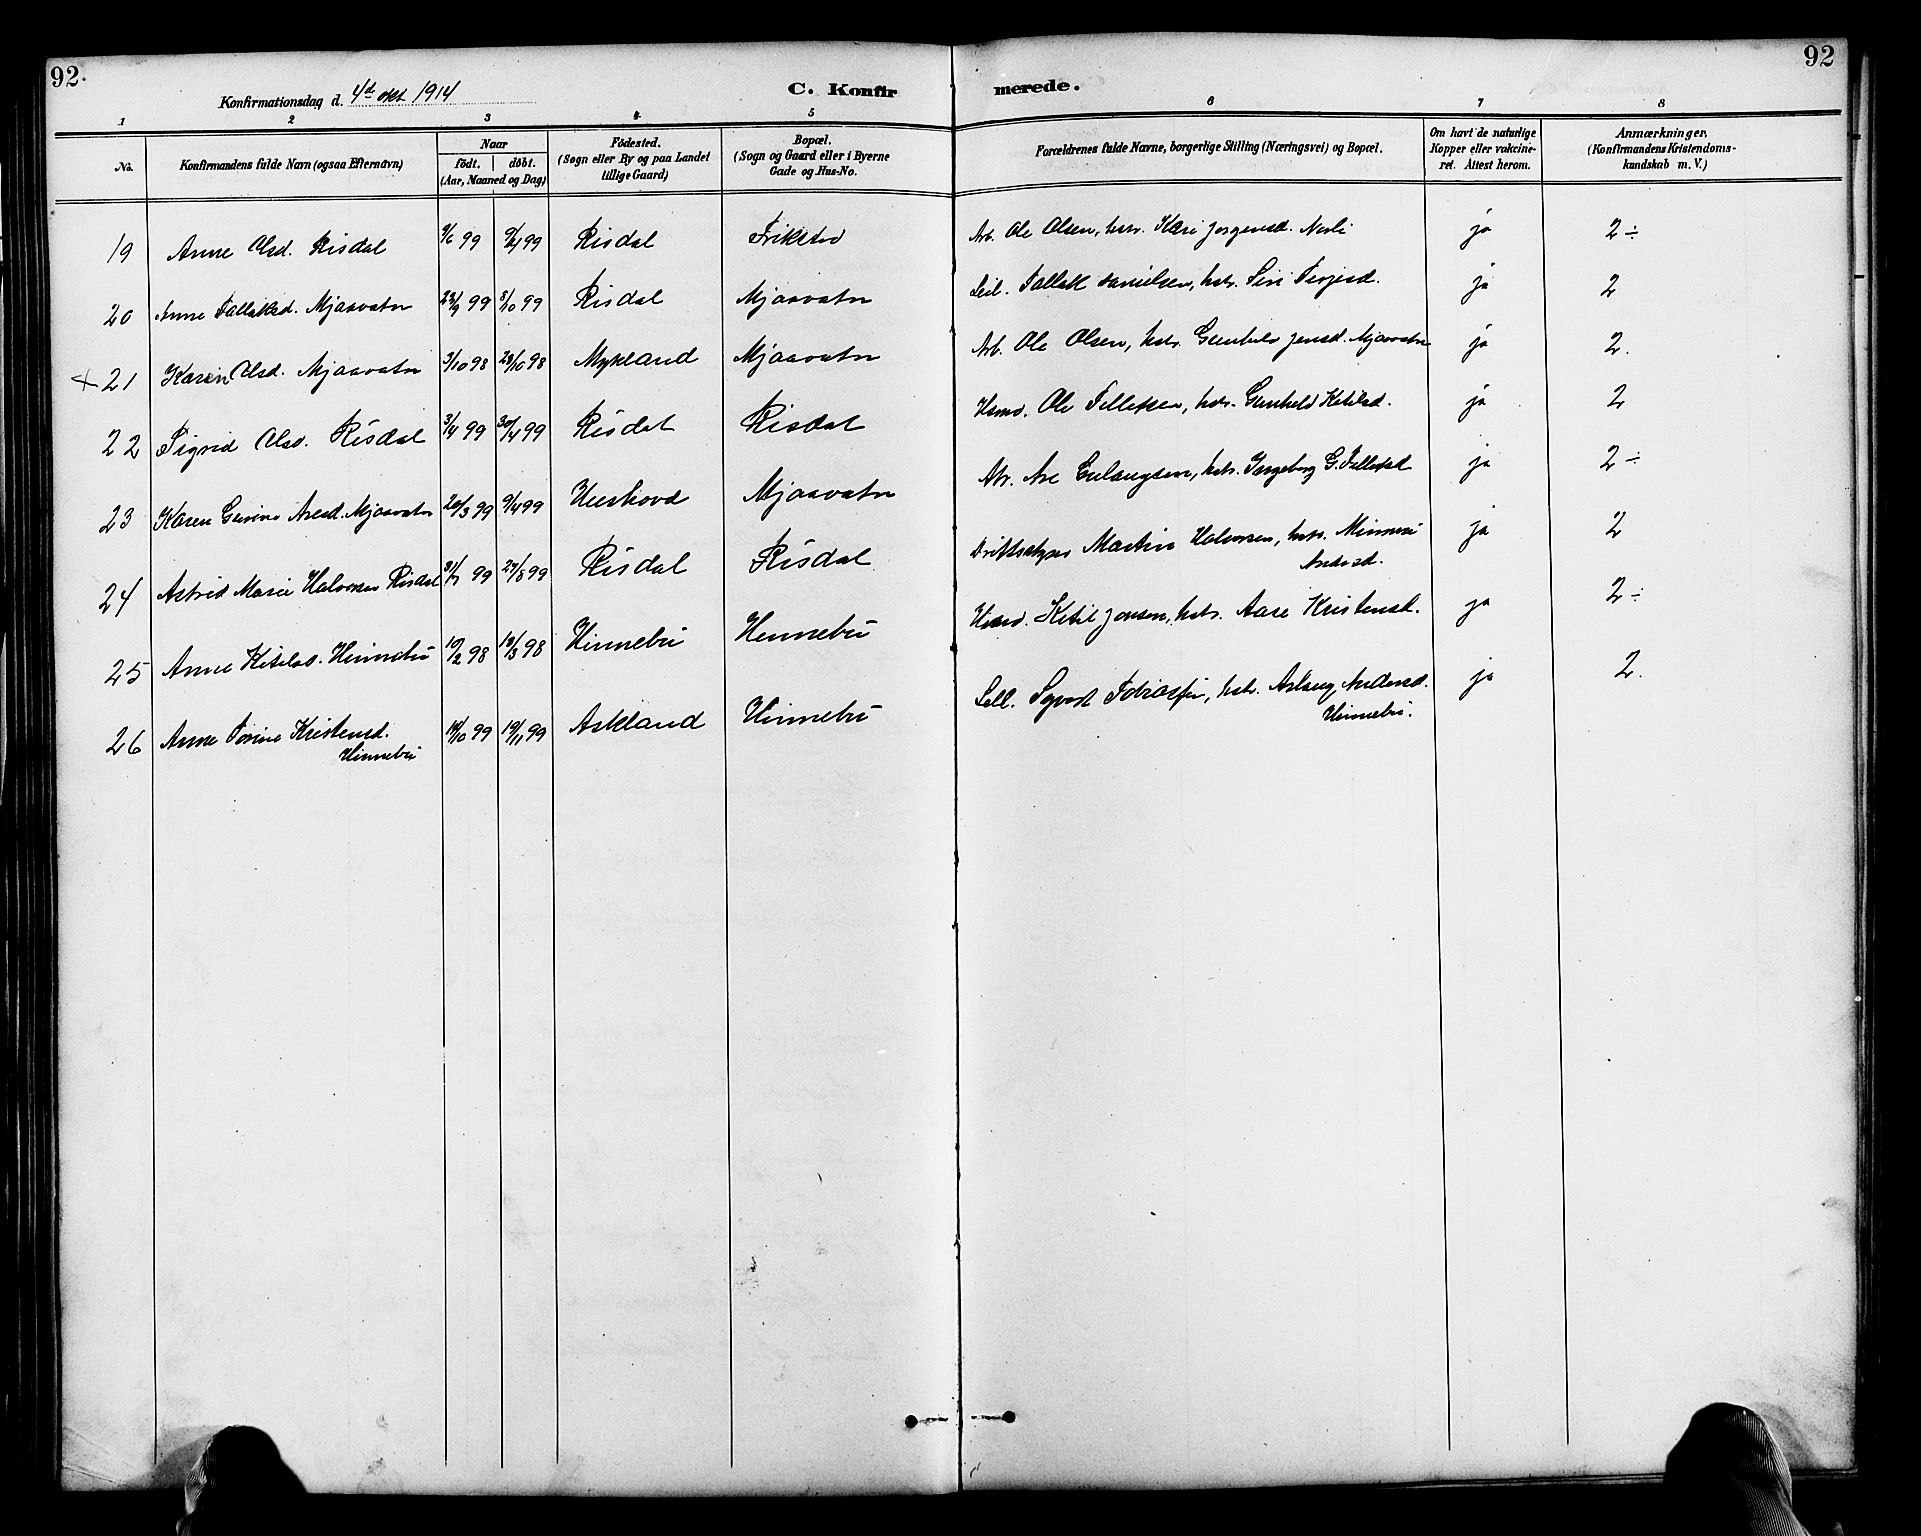 92.
92
Konfirmationsdag d. 4de okt 1914
C. Konfirmerede.
1 2 3 4 5 6 7 8
No.
Konfirmandens fulde Navn (ogsaa Efternavn)
Naar
födt. döbt.
(Aar, Maaned og Dag)
Födested.
(Sogn eller By og paa Landet
tillige Gaard)
Bopæl.
(Sogn og Gaard eller i Byerne
Gade og Hus-No.
Forældrenes fulde Navne, borgerlige Stilling (Næringsvei) og Bopæl.
Om havt de naturlige
Kopper eller vakcine-
ret. Attest herom.
Anmærkninger.
(Konfirmandens Kristendoms-
kundskab m. V.)
19 Anne Olsd. Risdal 9/6 99 99 Risdal Arb. Ole Olsen, hstr. Kari Jorgensd. Nesli ja 2÷
20 Anne Tallaksd. Mjaavatn 23/9 99 8/10 99 Risdal Mjaavatn Leil. Tallak Danielsen, hstr. Siri Terjesd. ja 2
+ 21 Karen Olsd. Mjaavatn 3/10 98 23/10 98 Mykland Mjaavatn Arb. Ole Olsen, hstr. Gunhild Jensd. Mjaavatn ja 2.
22 Sigrid Olsd. Risdal 3/4 99 30/4 99 Risdal Risdal Hsmd. Ole Tellefsen, hstr. Gunhild Ketilsd. ja 2
23 Karen Aresd. Mjaavatn 20/3 99 9/4 99 Mjaavatn Are hstr. Ingeborg G. Tellefsd ja 2÷
24 Astrid Marie Halvorsen Risdal 31/7 99 27/8 99 Risdal Risdal Martin Halvorsen, hstr.
Andersd. ja 2
25 Anne Ketilsd. Hinnebu 10/2 98 13/3 98 Hinnebu Hinnebu Hsmd. Ketil Jonsen, hstr. Aase Kristensd. ja 2÷
26 Anne Torine Kristensd.
Hinnebu /10 99 19/11 99 Askland Hinnebu hstr. Aslaug Andersd.
Hinnebu. ja 2.